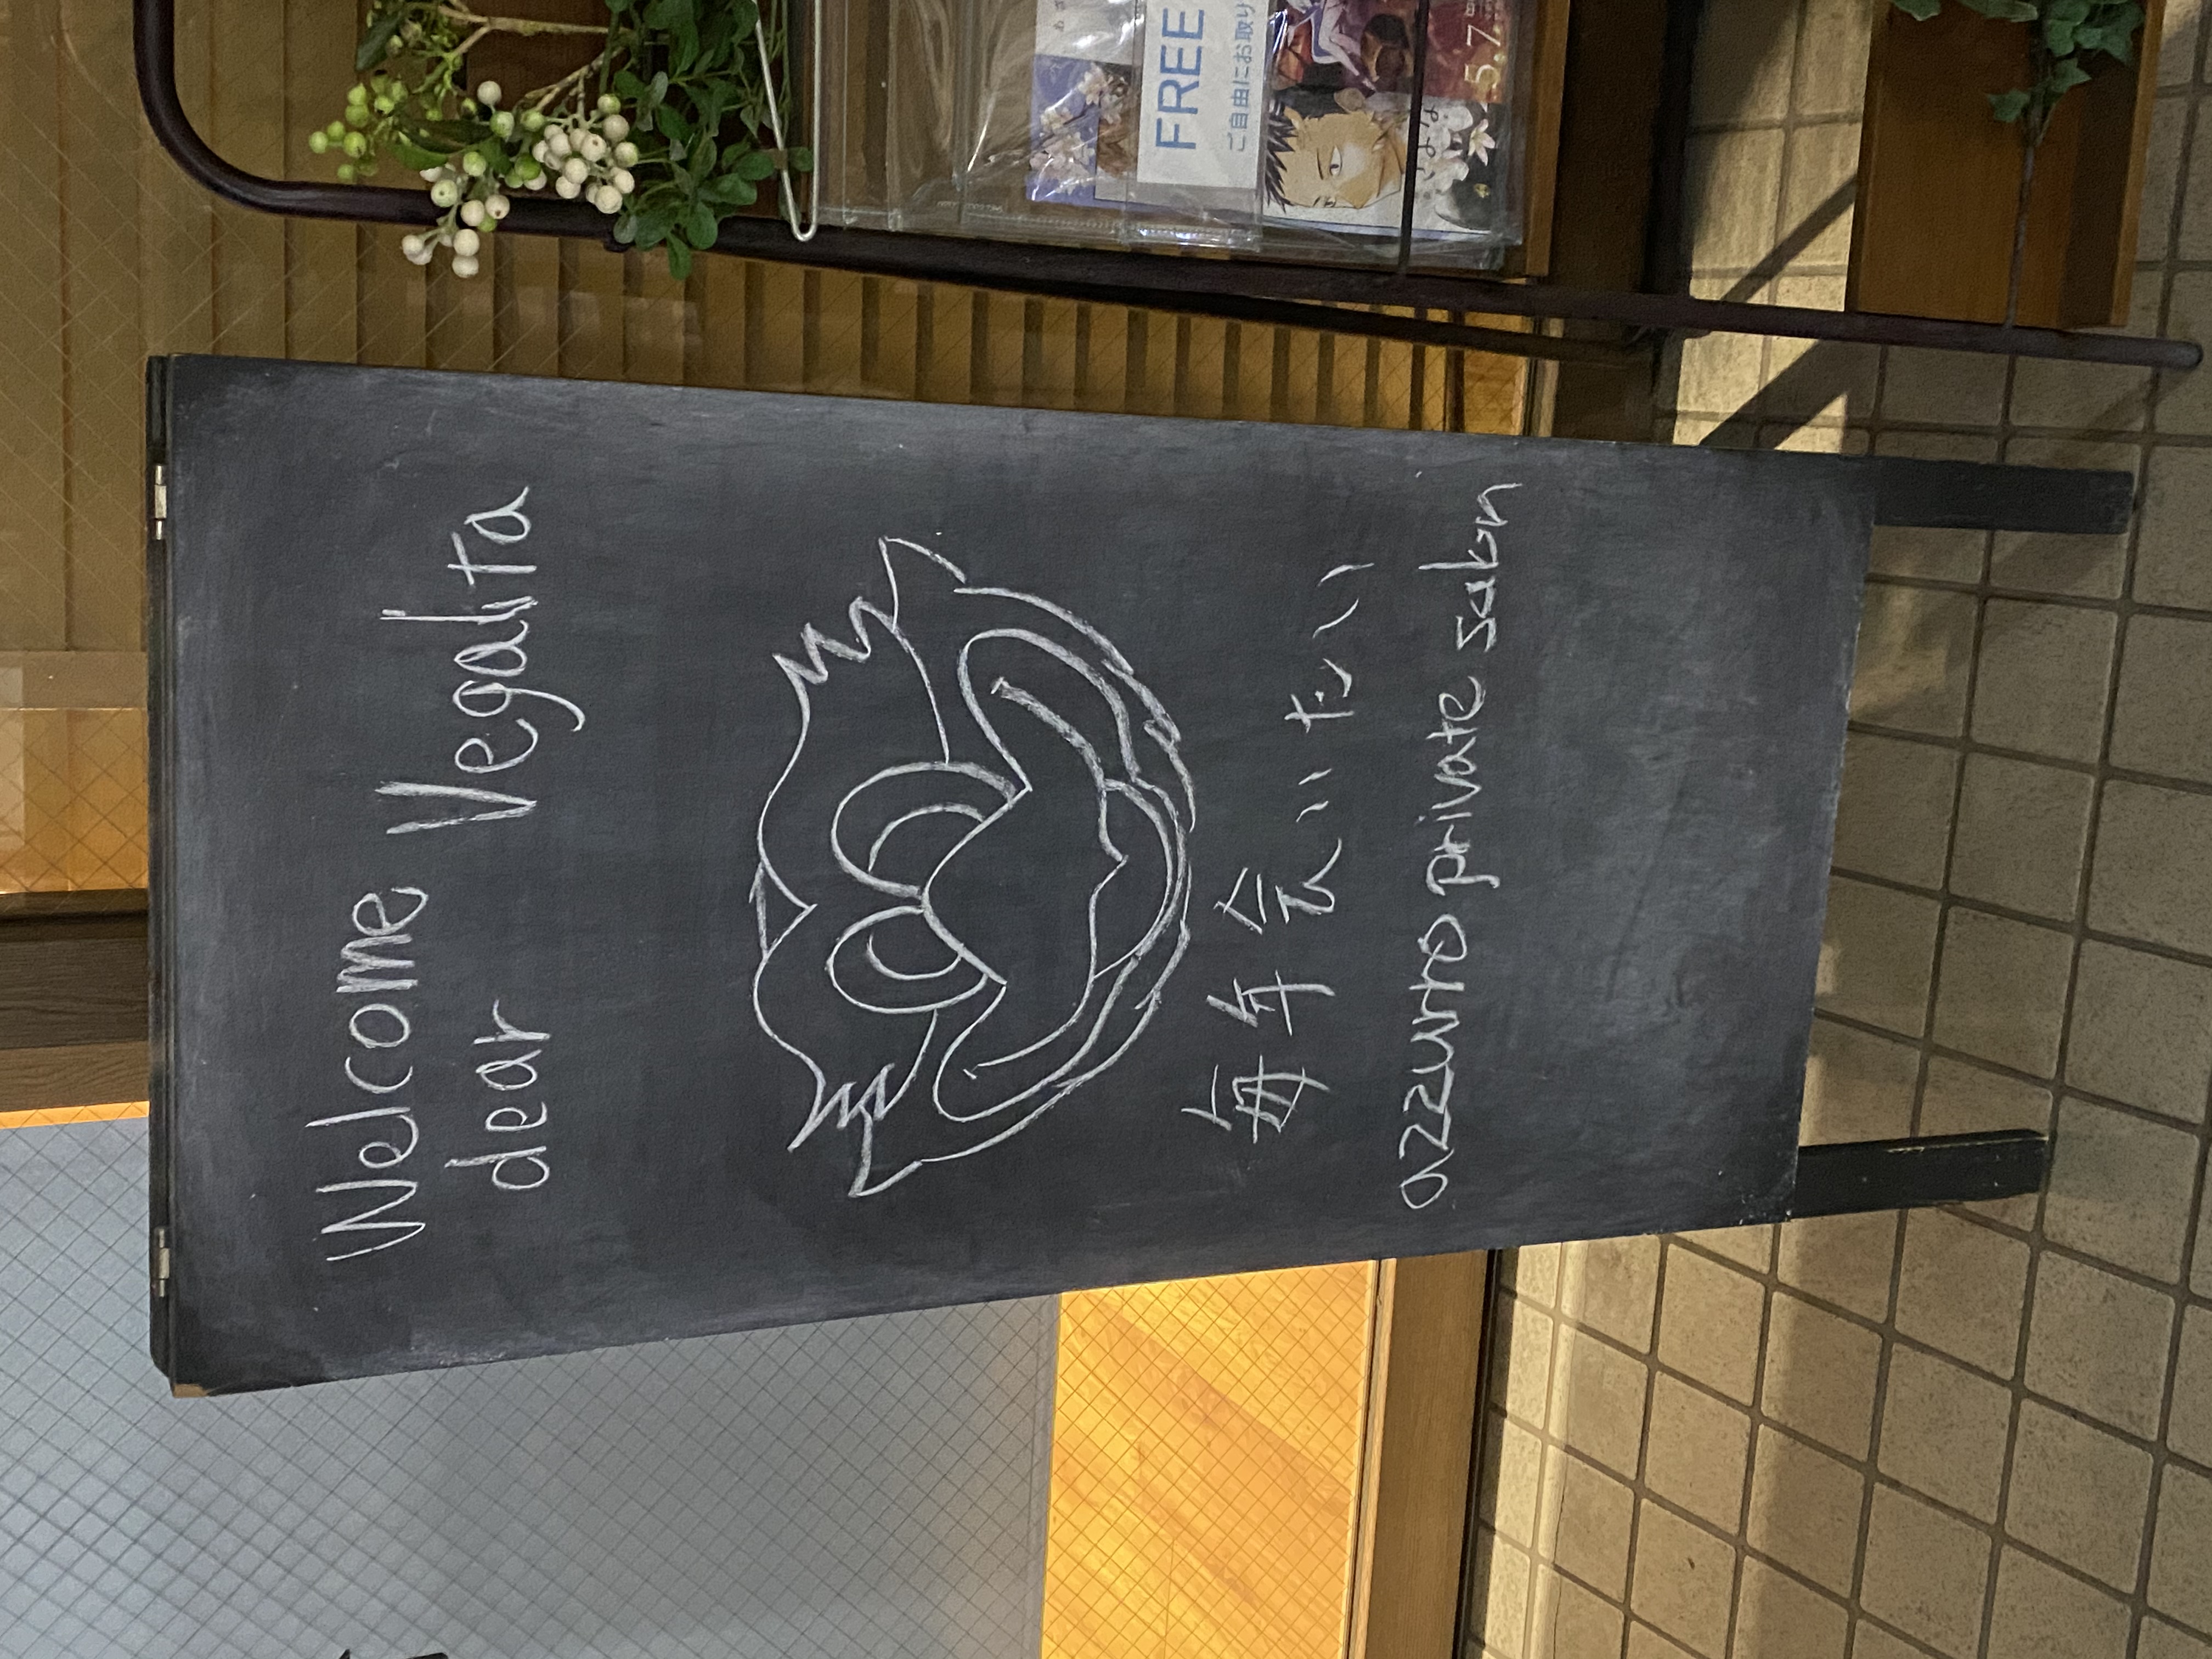 Welcome
dear Vegalta
毎年会いたい
azzurro private salon
FREE
ご自由にお取り
5.7